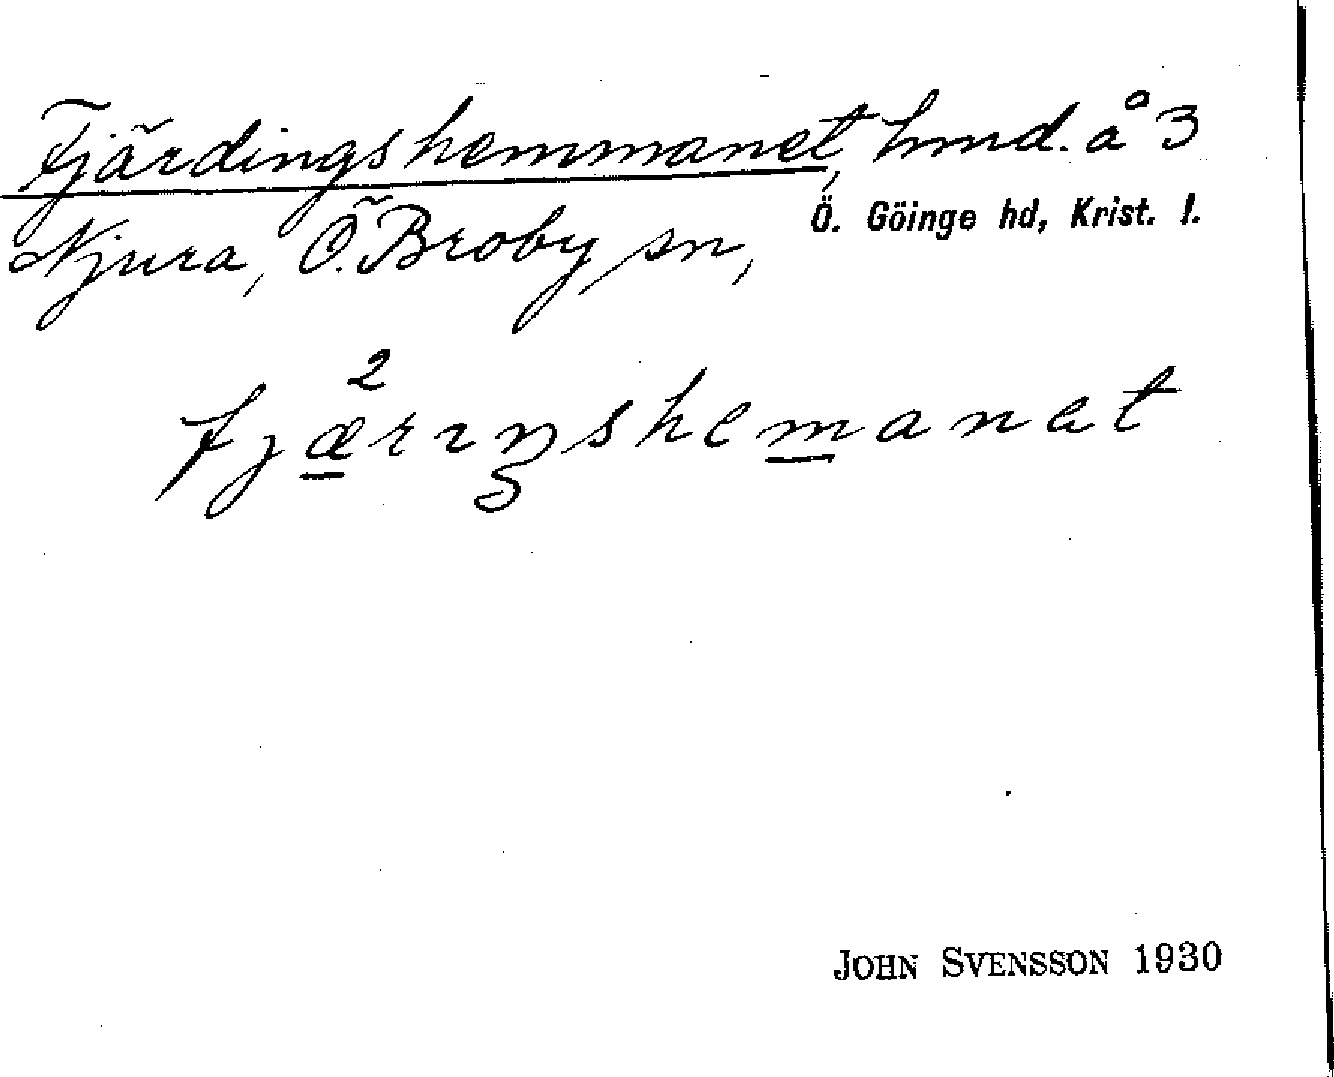 Fjärdingshemmanet, hmd. å 3
Njura, Ö. Broby sn, Ö. Göinge hd, Krist. l.
2
fjærıŋshemanet
JOHN SVENSSON 1930